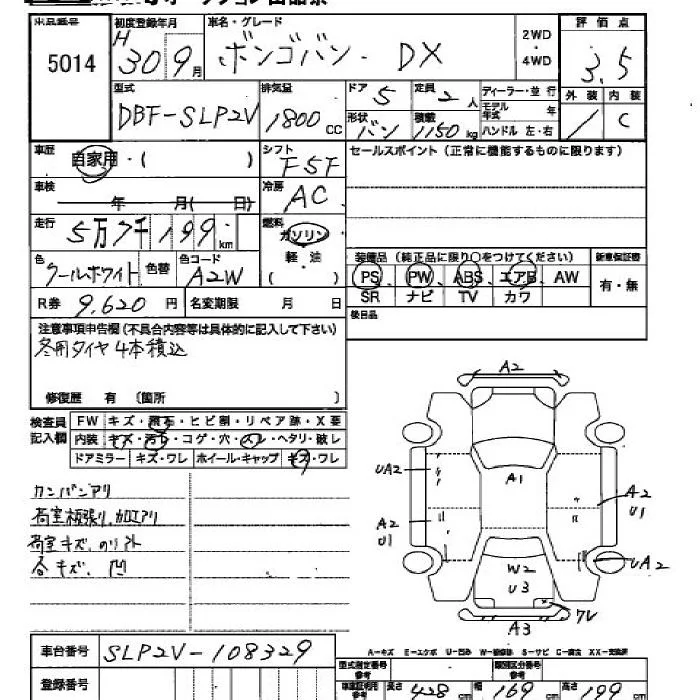 出品番号 初度登録年月 車名・グレード 2WD ・ 4WD 評価点
5014 H 30 9月 ボンゴバン・ DX 3.5
型式 排気量 ドア 5 定員 2人 ディーラー・並行 外装 内装
DBF-SLP2V 1800 CC 形状 バン 積載 1150kg モデル年式 年 ハンドル 左・右 / C
車歴 自家用・( ) シフト F5F セールスポイント(正常に機能するものに限ります)
車検 年 月( 日) 冷房 AC
走行 5万7千199km 燃料 ガソリン
軽・油
( )
色 クールホワイト 色替 色コード A2W
装備品(純正品に限り○をつけてください) 新車保証書
PS PW ABS エアB AW 有・無
SR ナビ TV カワ
R券 9,620円 名変期限 月 日 後日品
注意事項申告欄(不具合内容等は具体的に記入して下さい)
冬用タイヤ4本積込
修復歴 有 〔箇所 〕
検査員記入欄 FW キズ・飛石・ヒビ割・リペア跡・X要
内装 キズ・汚れ・コゲ・穴・スレ・ヘタリ・破レ
ドアミラー キズ・ワレ ホイール・キャップ キズ・ワレ
カンバンアリ
荷室板張り,加工アリ
荷室キズ、のり外
各キズ、凹
A2
A1
UA2
A2
U1
A2
U1
UA2
W2
U3
ワレ
A3
A-キズ E-エクボ U-凹み W-補修跡 S-サビ C-腐食 XX-交換済
車台番号 SLP2V-108329
登録番号
型式指定番号 参考 類別区分番号 参考
車検証明用 参考 長さ 428cm 幅 169cm 高さ 199cm